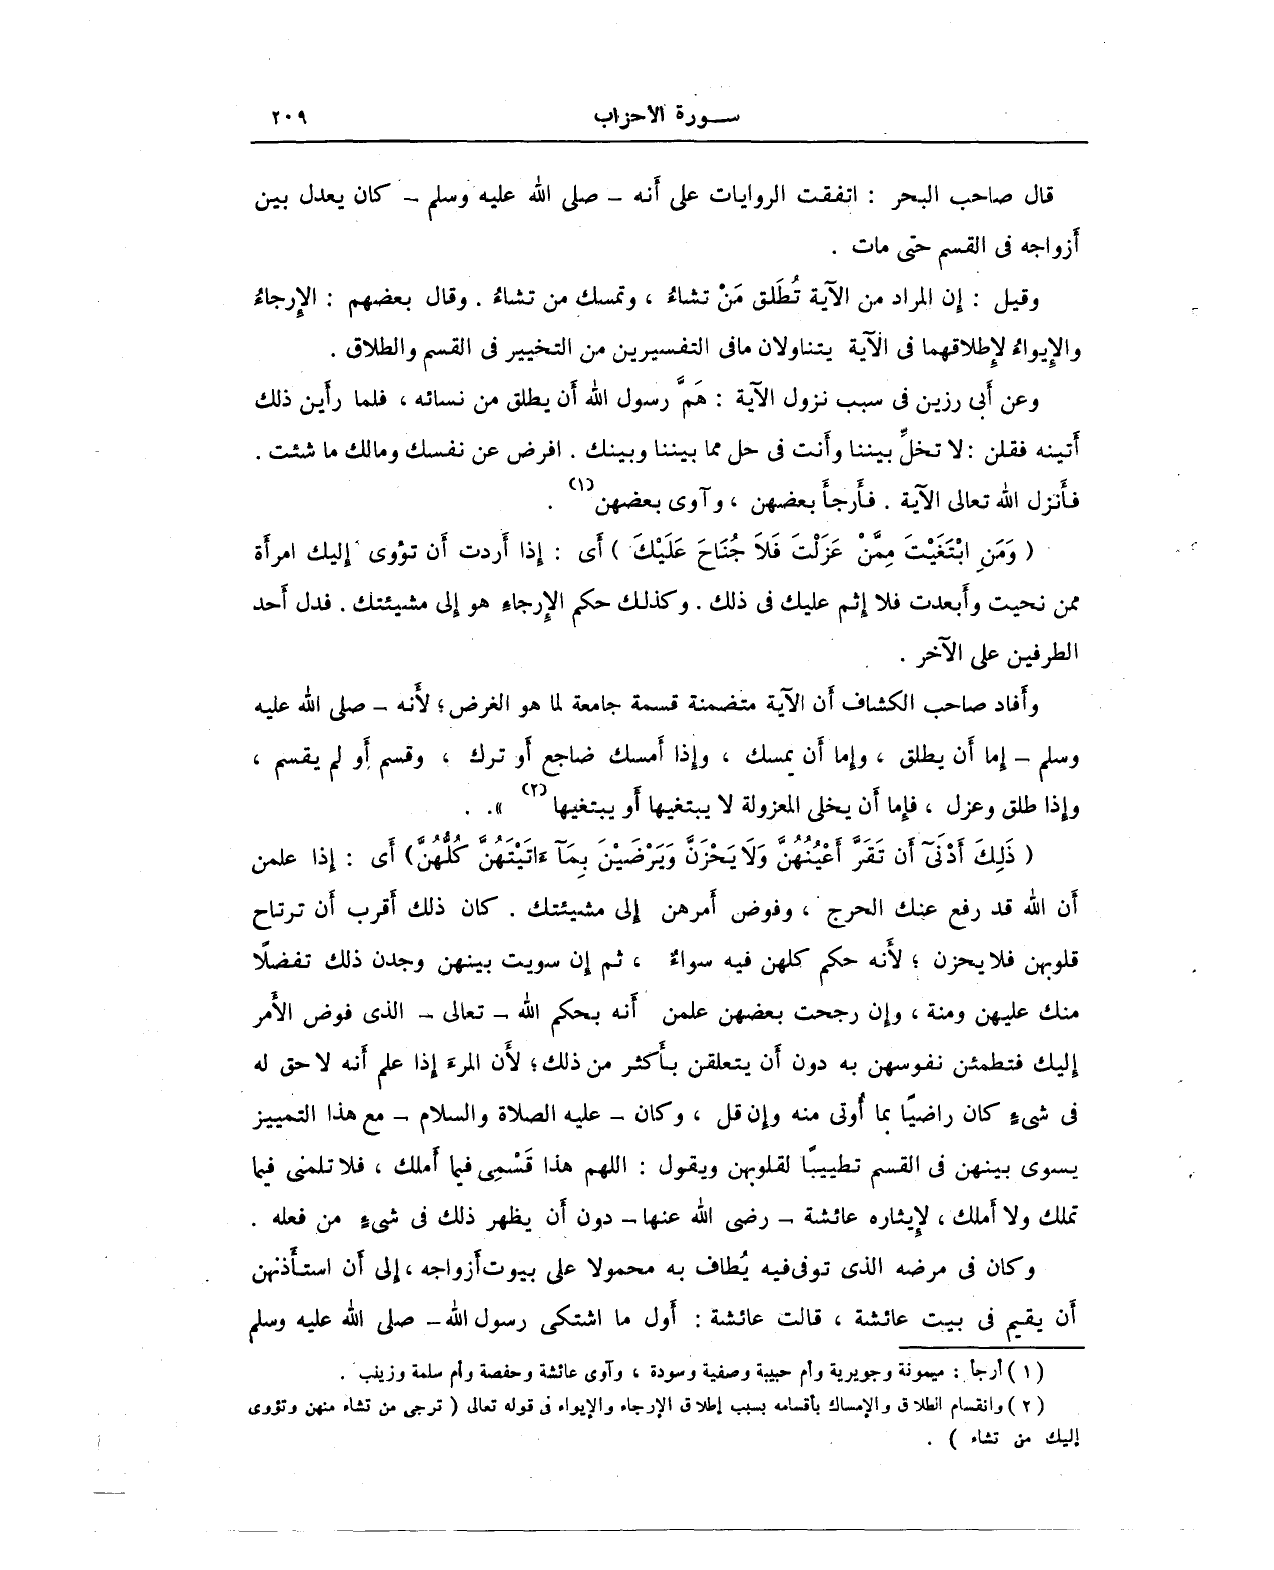 سورة الأحزاب ٢٠٩
قال صاحب البحر : اتفقت الروايات على أنه – صلى الله عليه وسلم – كان يعدل بين
أزواجه فى القسم حتى مات .
وقيل : إن المراد من الآية تُطَلق مَنْ تشاءُ ، وتمسك من تشاءُ . وقال بعضهم : الإِرجاءُ
والإِيواءُ لإِطلاقهما فى الآية يتناولان مافى التفسيرين من التخيير فى القسم والطلاق .
وعن أبى رزين فى سبب نزول الآية : هَمَّ رسول الله أن يطلق من نسائه ، فلما رأين ذلك
أتينه فقلن : لا تخلِّ بيننا وأنت فى حل مما بيننا وبينك . افرض عن نفسك ومالك ما شئت .
فأنزل الله تعالى الآية . فأرجأ بعضهن ، وآوى بعضهن (١) .
( وَمَنِ ابْتَغَيْتَ مِمَّنْ عَزَلْتَ فَلاَ جُنَاحَ عَلَيْكَ ) أى : إذا أردت أن تؤوى إليك امرأة
ممن نحيت وأبعدت فلا إثم عليك فى ذلك . وكذلك حكم الإِرجاءِ هو إلى مشيئتك . فدل أحد
الطرفين على الآخر .
وأفاد صاحب الكشاف أن الآية متضمنة قسمة جامعة لما هو الغرض؛ لأنه – صلى الله عليه
وسلم – إما أن يطلق ، وإما أن يمسك ، وإذا أمسك ضاجع أو ترك ، وقسم أو لم يقسم ،
وإذا طلق وعزل ، فإما أن يخلى المعزولة لا يبتغيها أو يبتغيها (٢) ». .
( ذَلِكَ أَدْنَىٰٓ أَن تَقَرَّ أَعْيُنُهُنَّ وَلَا يَحْزَنَّ وَيَرْضَيْنَ بِمَآ ءَاتَيْتَهُنَّ كُلُّهُنَّ) أى : إذا علمن
أن الله قد رفع عنك الحرج ، وفوض أمرهن إلى مشيئتك . كان ذلك أقرب أن ترتاح
قلوبهن فلا يحزن ؛ لأنه حكم كلهن فيه سواءُ ، ثم إن سويت بينهن وجدن ذلك تفضلًا
منك عليهن ومنة ، وإن رجحت بعضهن علمن أنه بحكم الله – تعالى – الذى فوض الأمر
إليك فتطمئن نفوسهن به دون أن يتعلقن بأكثر من ذلك؛ لأن المرءَ إذا علم أنه لا حق له
فى شىءٍ كان راضيًا بما أُوتى منه وإن قل ، وكان – عليه الصلاة والسلام – مع هذا التمييز
يسوى بينهن فى القسم تطييبًا لقلوبهن ويقول : اللهم هذا قَسْمِى فيما أملك ، فلا تلمنى فيما
تملك ولا أملك، لإِيثاره عائشة – رضى الله عنها – دون أن يظهر ذلك فى شىءٍ من فعله .
وكان فى مرضه الذى توفى فيه يُطاف به محمولا على بيوت أزواجه ، إلى أن استأذنهن
أن يقيم فى بيت عائشة ، قالت عائشة : أول ما اشتكى رسول الله – صلى الله عليه وسلم
( ١ ) أرجأ : ميمونة وجويرية وأم حبيبة وصفية وسودة ، وآوى عائشة وحفصة وأم سلمة وزينب .
( ٢ ) وانقسام الطلاق والإمساك بأقسامه بسبب إطلاق الإرجاء والإيواء فى قوله تعالى ( ترجى من تشاء منهن وتؤوى
إليك من تشاء ) .